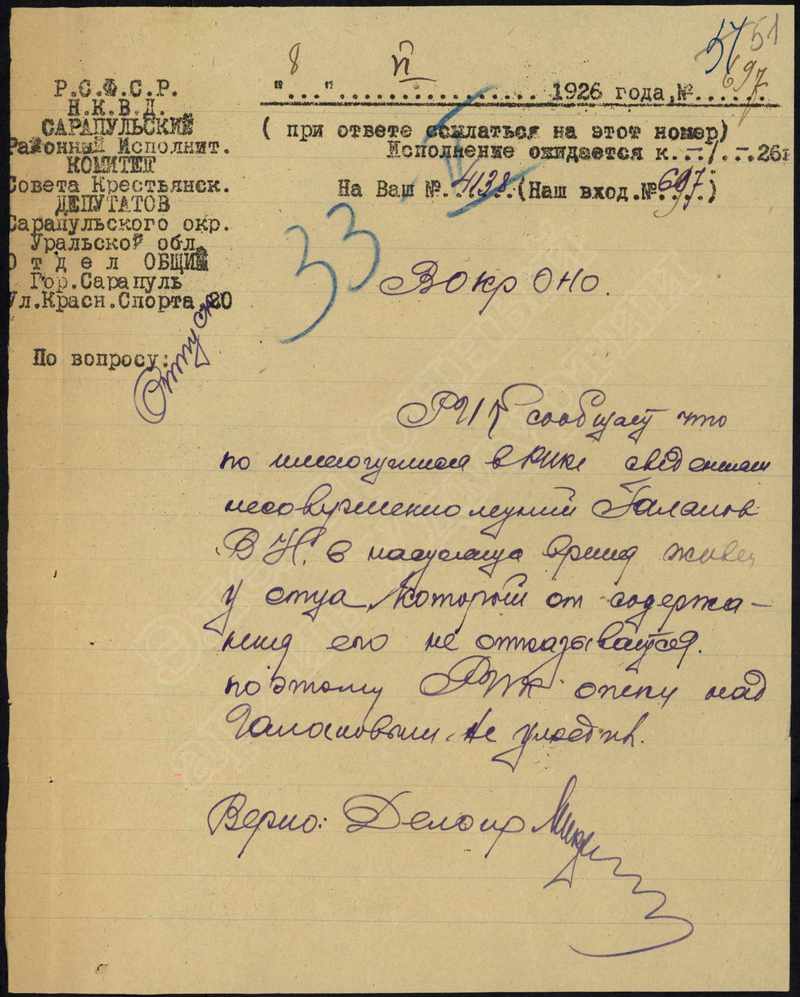 51
57
697
Р.С.Ф.С.Р.
Н.К.В.Д.
САРАПУЛЬСКИЙ
Районный Исполнит.
КОМИТЕТ
Совета Крестьянск.
ДЕПУТАТОВ
Сарапульского окр.
Уральской обл.
Отдел ОБЩИЙ
Гор.Сарапуль
Ул.Красн.Спорта 20
По вопросу:
Отпуск
"8" П 1926 года, № 697.
( при ответе ссылаться на этот номер)
Исполнение ожидается к.-/.-.26г
На Ваш № 4138 (Наш вход.№ 697)
33
В окр ОНО.
РИК сообщает что
по имеющимся в РИКе сведениям
несовершеннолетний Галанов
В Н. в настояще время живет
у отца, который от содержа-
ния его не отказывается.
поэтому РИК опеку над
Галановым не
Верно: Делопр